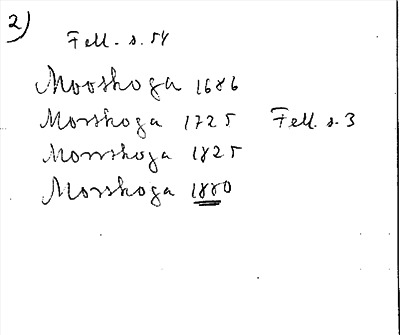 2)
Fell. s. 54
Mooshoga 1686
Morshoga 1725 Fell. s. 3
Morrshoga 1825
Morshoga 1880